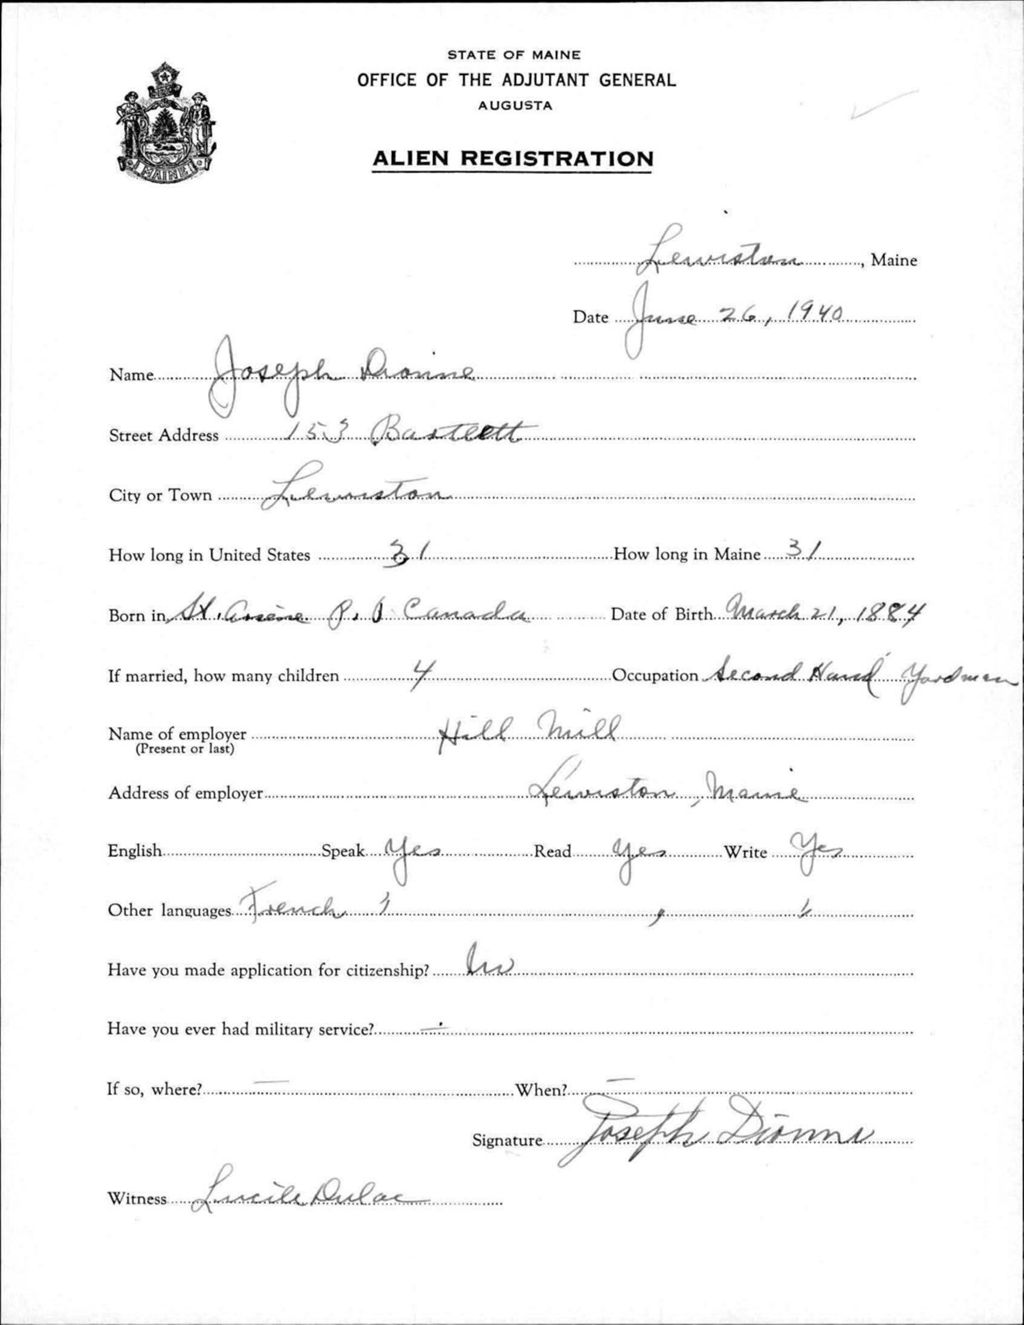 STATE OF MAINE
OFFICE OF THE ADJUTANT GENERAL
AUGUSTA
ALIEN REGISTRATION
MAINE
Lewiston, Maine
Date June 26, 1940
Name Joseph Dionne
Street Address 153 Bartlett
City or Town Lewiston
How long in United States 31 How long in Maine 31
Born in St. Arsène P. Q Canada Date of Birth March 21, 1884
If married, how many children 4 Occupation Second Hand Yardman
Name of employer Hill Mill
(Present or last)
Address of employer Lewiston, Maine
English Speak Yes Read Yes Write Yes
Other languages French " " "
Have you made application for citizenship? No
Have you ever had military service? —
If so, where? — When? —
Signature Joseph Dionne
Witness Lucile Dulac